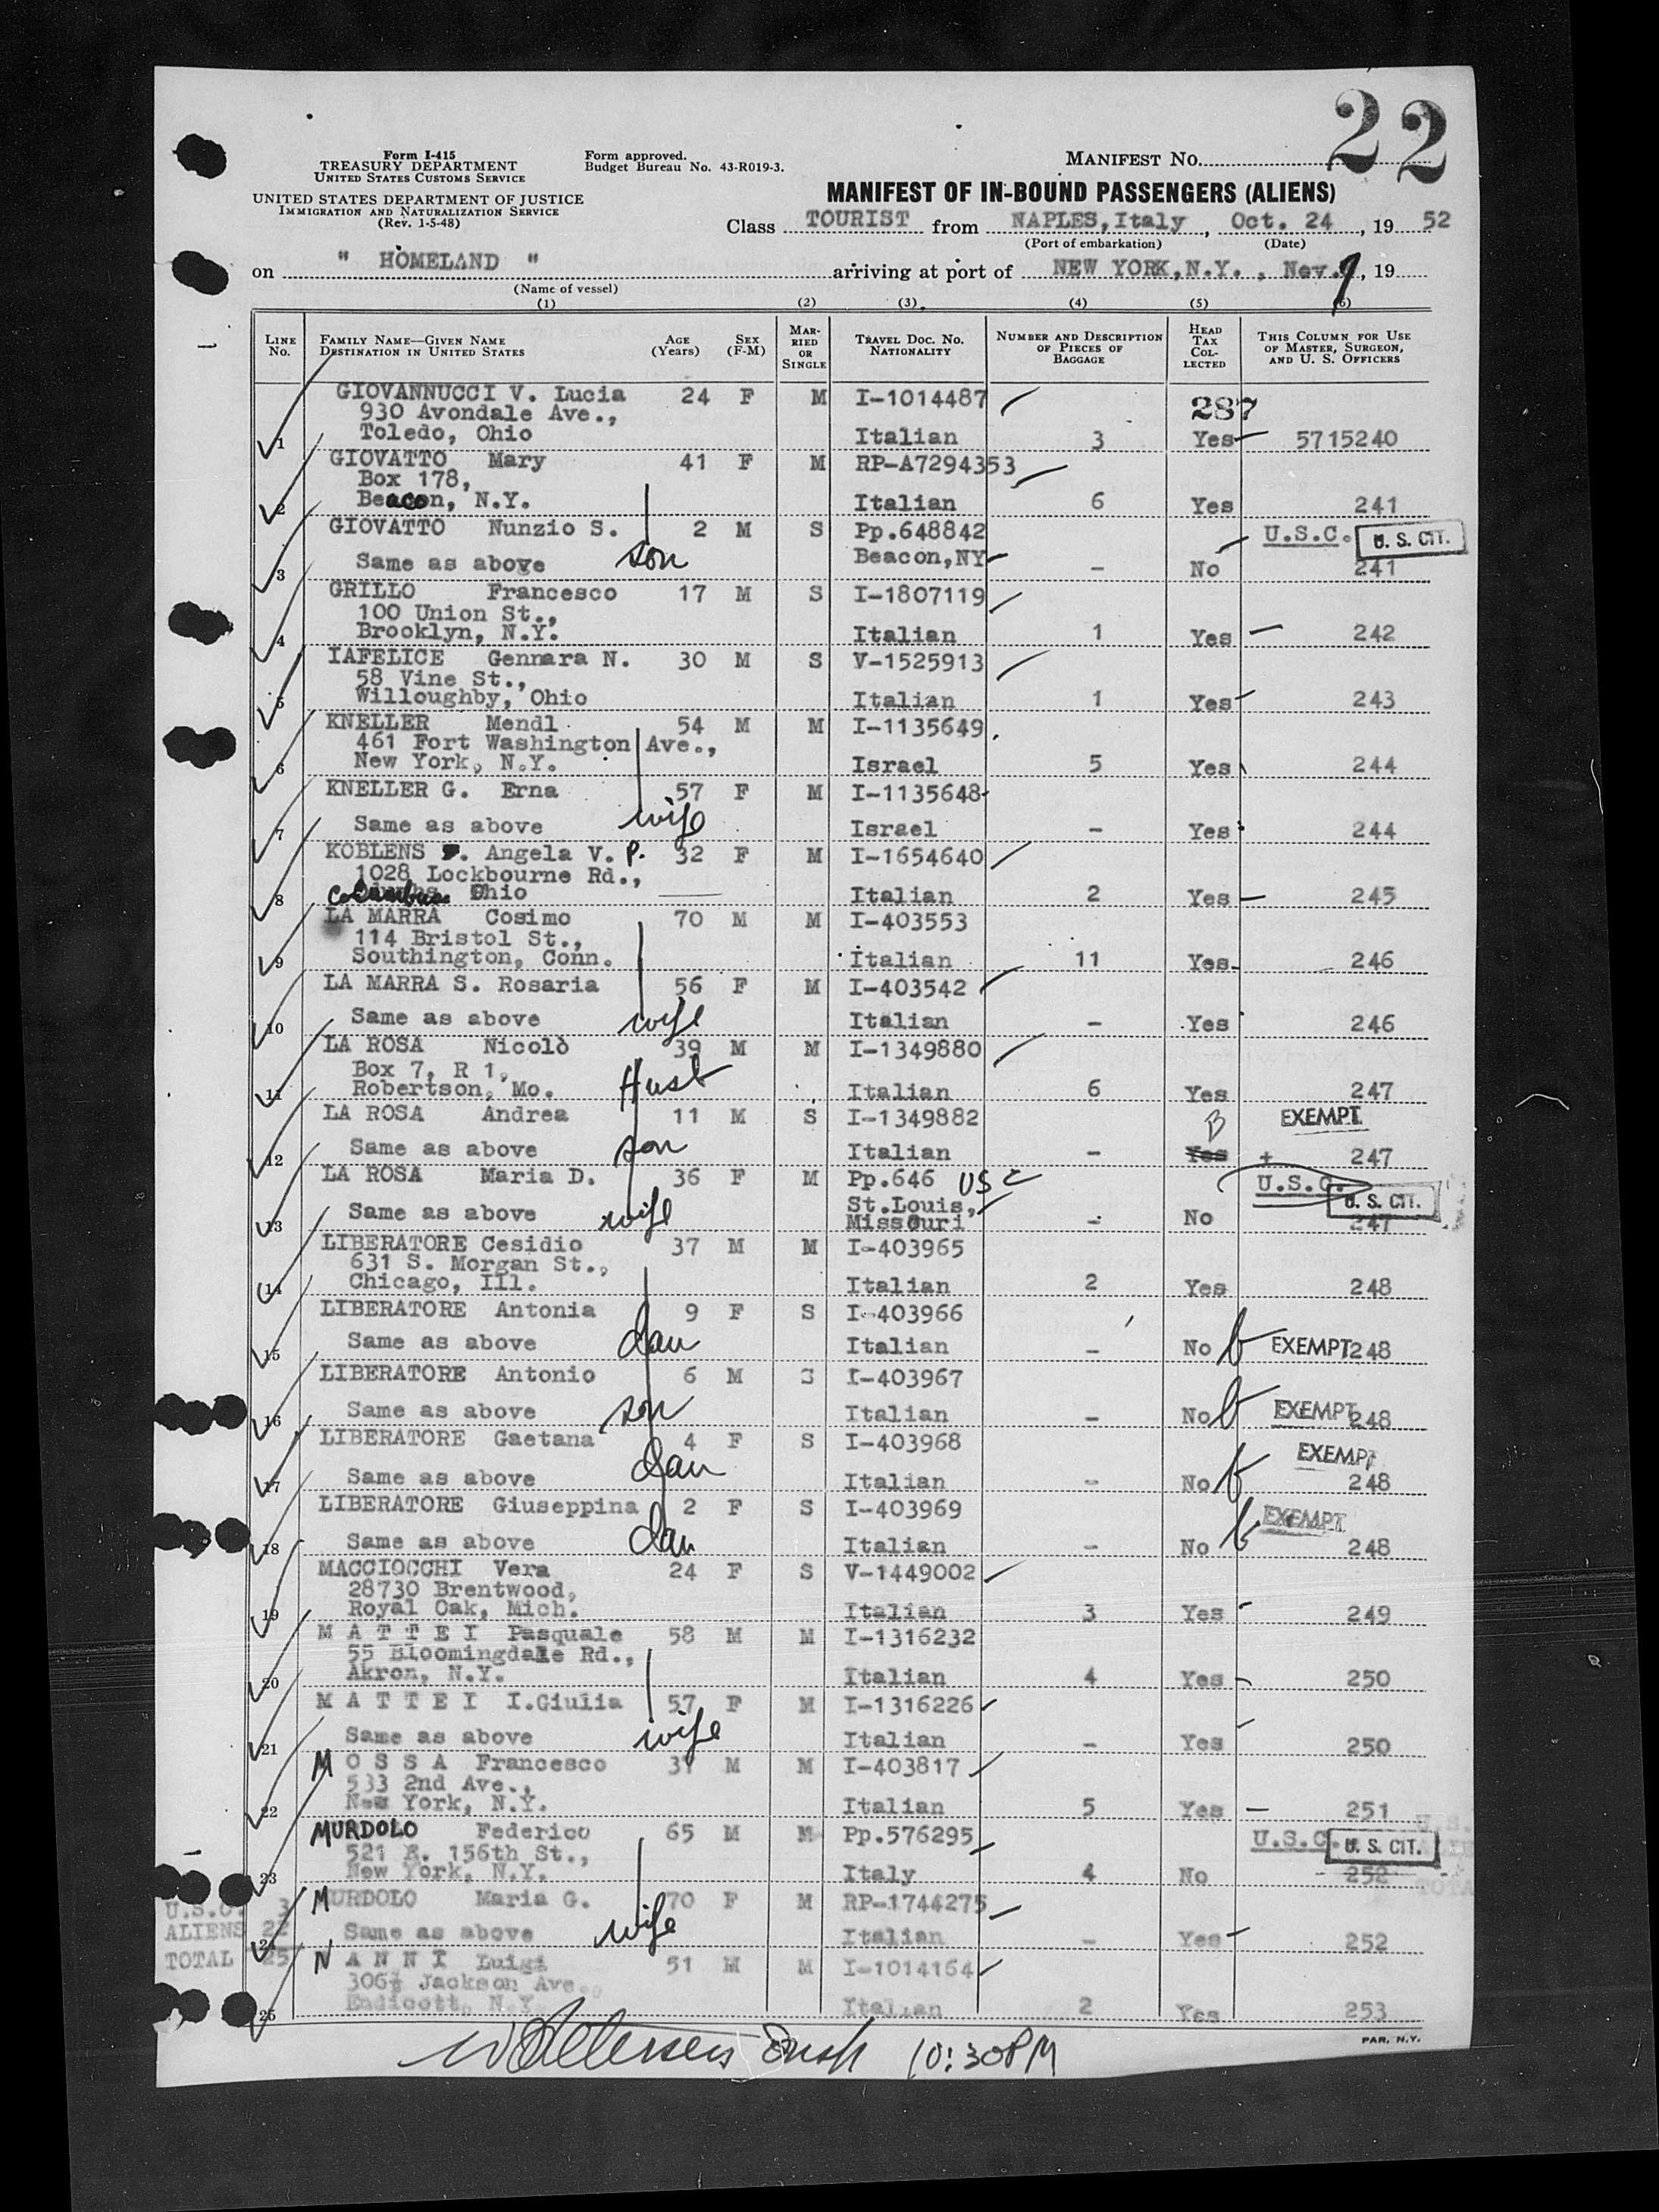 22
Form I-415
TREASURY DEPARTMENT
UNITED STATES CUSTOMS SERVICE
Form approved.
Budget Bureau No. 43-R019-3.
MANIFEST No.
UNITED STATES DEPARTMENT OF JUSTICE
IMMIGRATION AND NATURALIZATION SERVICE
(Rev. 1-5-48)
MANIFEST OF IN-BOUND PASSENGERS (ALIENS)
Class TOURIST from NAPLES, Italy , Oct. 24 , 19 52
(Port of embarkation) (Date)
on " HOMELAND " arriving at port of NEW YORK,N.Y. , Nov. 7, 19
(Name of vessel)
(1) (2) (3) (4) (5) (6)
LINE No. FAMILY NAME—GIVEN NAME DESTINATION IN UNITED STATES AGE (Years) SEX (F-M) MARRIED OR SINGLE TRAVEL DOC. No. NATIONALITY NUMBER AND DESCRIPTION OF PIECES OF BAGGAGE HEAD TAX COLLECTED THIS COLUMN FOR USE OF MASTER, SURGEON, AND U. S. OFFICERS
GIOVANNUCCI V. Lucia 24 F M I-1014487
930 Avondale Ave., 287
1 Toledo, Ohio Italian 3 Yes 5715240
GIOVATTO Mary 41 F M RP-A7294353
Box 178,
2 Beacon, N.Y. Italian 6 Yes 241
GIOVATTO Nunzio S. 2 M S Pp.648842 U.S.C. U. S. CIT.
3 Same as above son Beacon,NY - No 241
GRILLO Francesco 17 M S I-1807119
100 Union St.,
4 Brooklyn, N.Y. Italian 1 Yes 242
IAFELICE Gennara N. 30 M S V-1525913
58 Vine St.,
5 Willoughby, Ohio Italian 1 Yes 243
KNELLER Mendl 54 M M I-1135649
461 Fort Washington Ave.,
6 New York, N.Y. Israel 5 Yes 244
KNELLER G. Erna 57 F M I-1135648
7 Same as above wife Israel - Yes 244
KOBLENS Angela V. P. 32 F M I-1654640
1028 Lockbourne Rd.,
8 Columbus Ohio Italian 2 Yes 245
LA MARRA Cosimo 70 M M I-403553
114 Bristol St.,
9 Southington, Conn. Italian 11 Yes 246
LA MARRA S. Rosaria 56 F M I-403542
10 Same as above wife Italian - Yes 246
LA ROSA Nicolò 39 M M I-1349880
Box 7, R 1,
11 Robertson, Mo. Husb Italian 6 Yes 247
LA ROSA Andrea 11 M S I-1349882 B EXEMPT
12 Same as above son Italian - Yes + 247
LA ROSA Maria D. 36 F M Pp.646 USC U.S.C. U. S. CIT.
13 Same as above wife St.Louis, Missouri - No 247
LIBERATORE Cesidio 37 M M I-403965
631 S. Morgan St.,
14 Chicago, Ill. Italian 2 Yes 248
LIBERATORE Antonia 9 F S I-403966
15 Same as above dau Italian - No b EXEMPT 248
LIBERATORE Antonio 6 M S I-403967
16 Same as above son Italian - No b EXEMPT 248
LIBERATORE Gaetana 4 F S I-403968 EXEMPT
17 Same as above dau Italian - No b 248
LIBERATORE Giuseppina 2 F S I-403969 EXEMPT
18 Same as above dau Italian - No b 248
MACCIOCCHI Vera 24 F S V-1449002
28730 Brentwood,
19 Royal Oak, Mich. Italian 3 Yes 249
M A T T E I Pasquale 58 M M I-1316232
55 Bloomingdale Rd.,
20 Akron, N.Y. Italian 4 Yes 250
M A T T E I I.Giulia 57 F M I-1316226
21 Same as above wife Italian - Yes 250
M O S S A Francesco 37 M M I-403817
533 2nd Ave.,
22 New York, N.Y. Italian 5 Yes 251
MURDOLO Federico 65 M M Pp.576295 U.S.C. U. S. CIT.
521 E. 156th St.,
23 New York, N.Y. Italy 4 No 252
MURDOLO Maria G. 70 F M RP-1744275
24 Same as above wife Italian - Yes 252
U.S.C. 3
ALIENS 22
TOTAL 25
N A N N I Luigi 51 M M I-1014164
306½ Jackson Ave.,
25 Endicott, N.Y. Italian 2 Yes 253
PAR. N.Y.
10:30PM